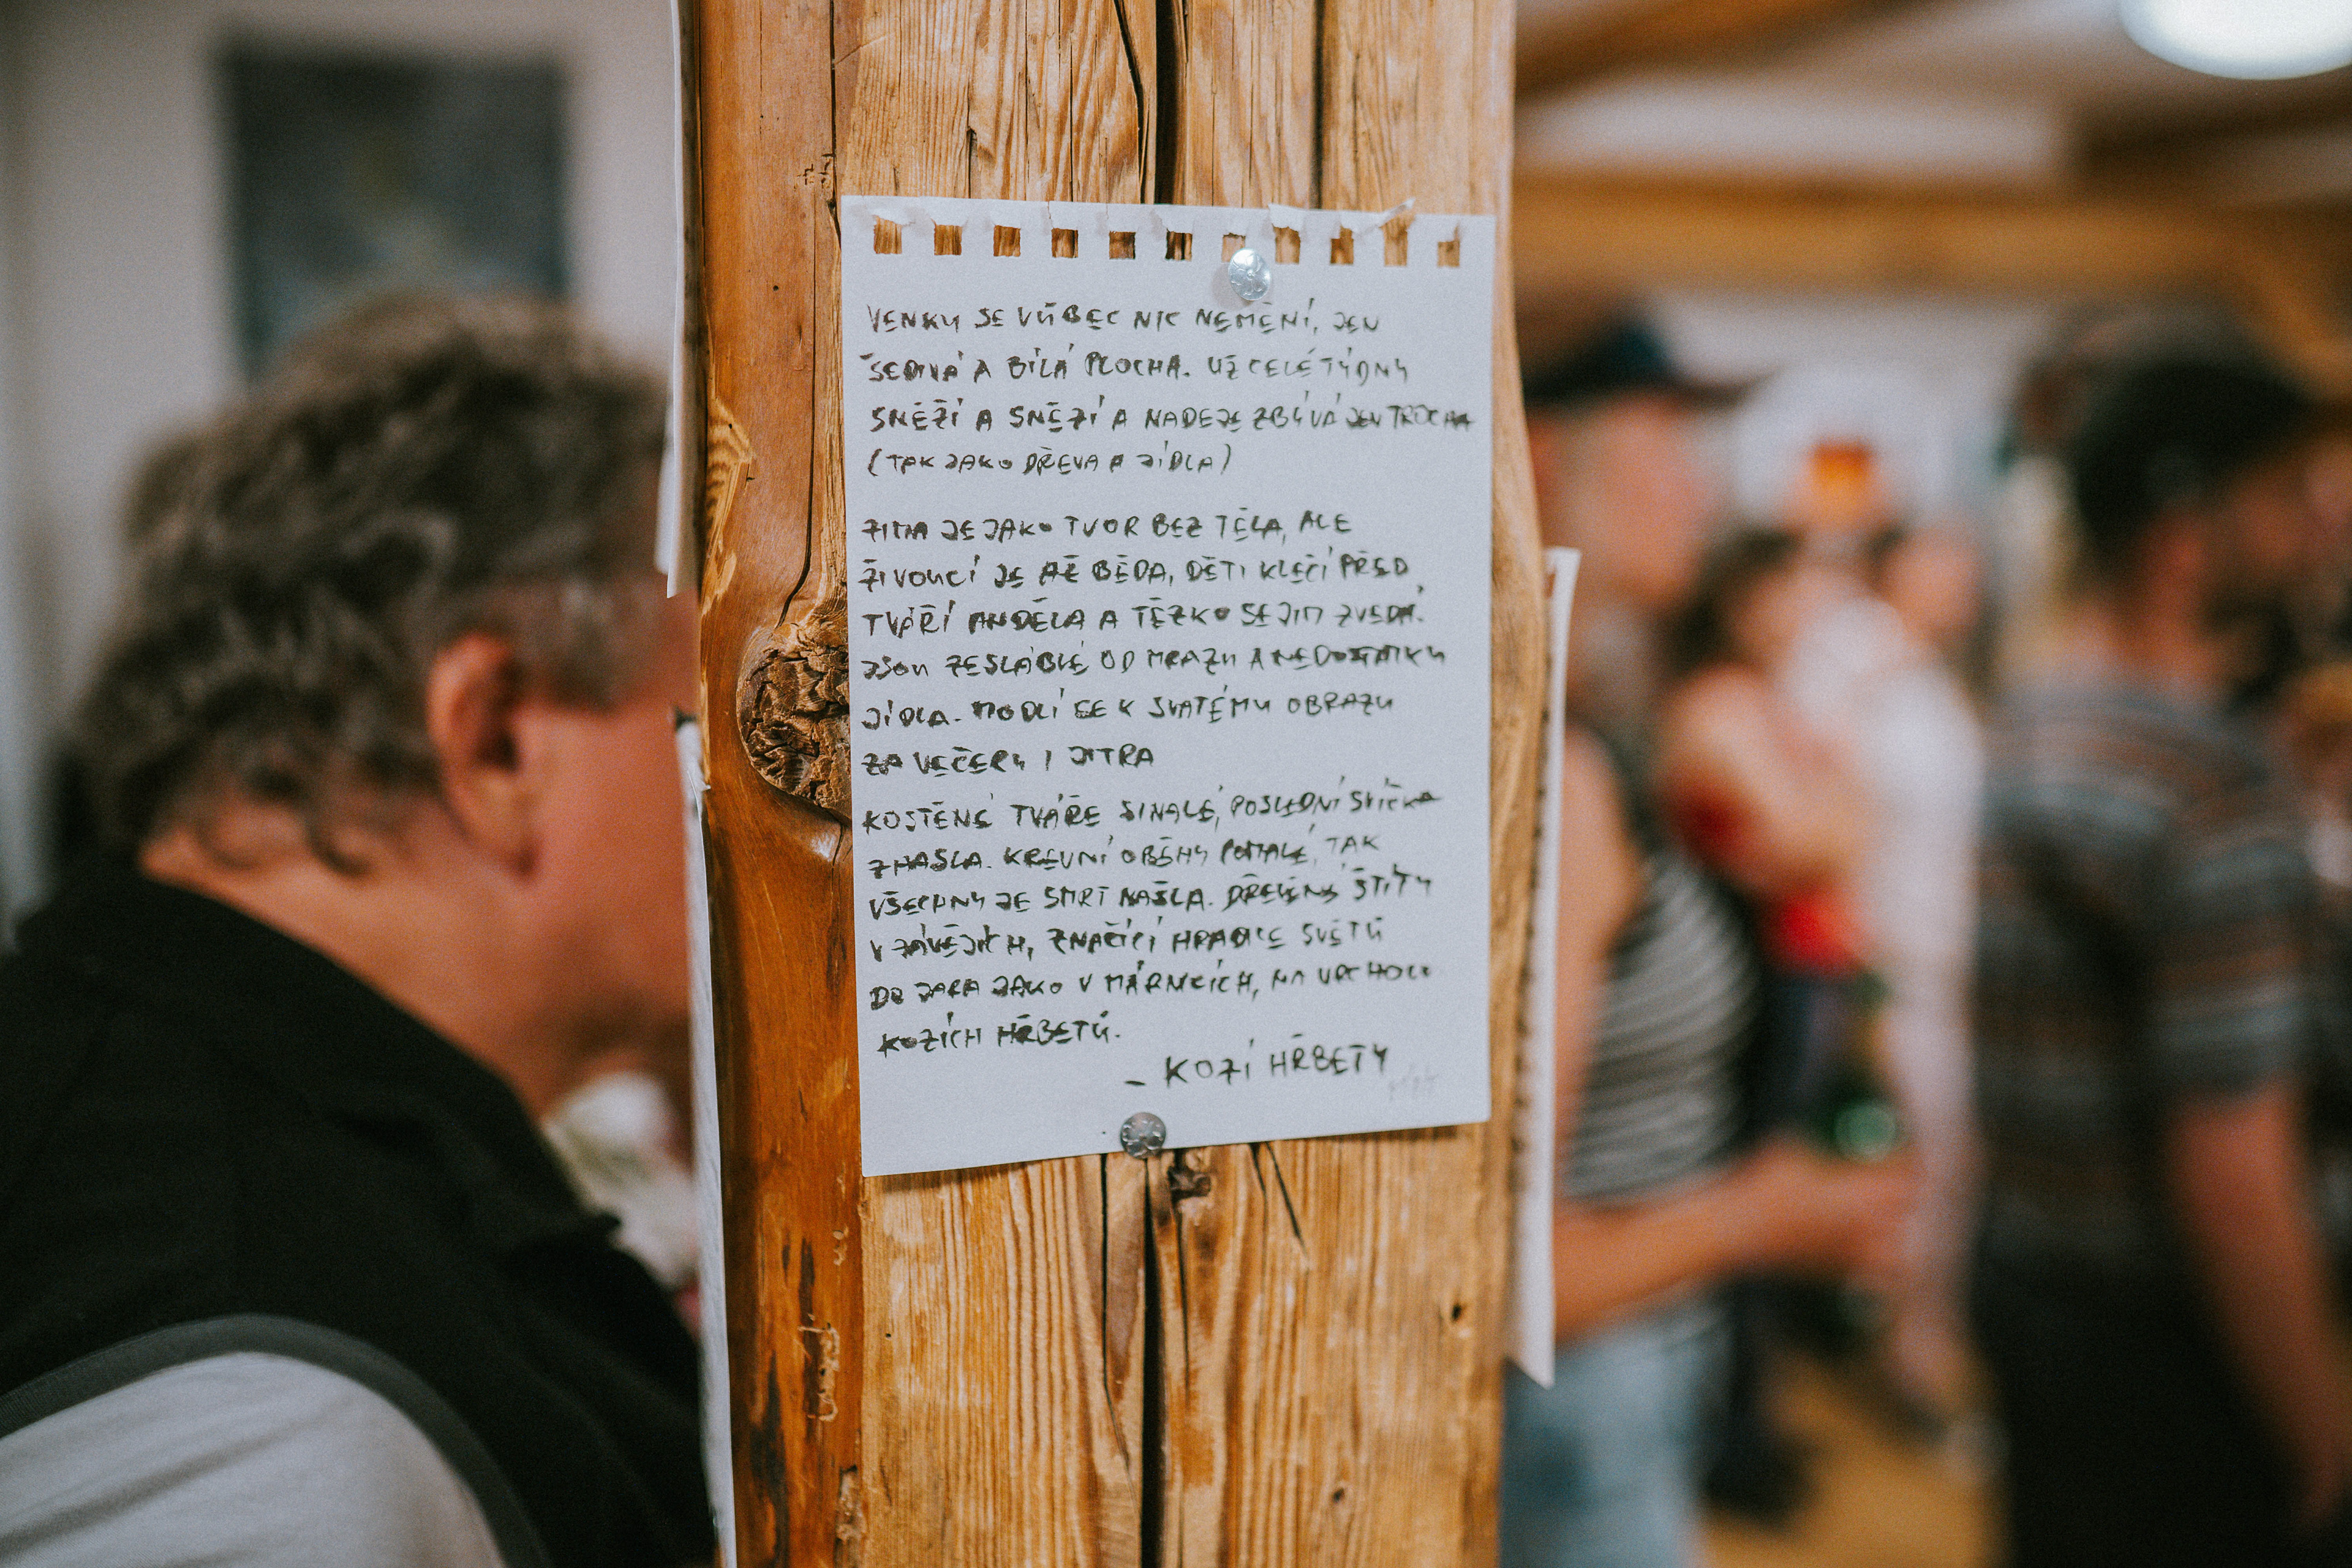 VENKU SE VŮBEC NIC NEMĚNÍ, JEN
ŠEDIVÁ A BÍLÁ PLOCHA. UŽ CELÉ TÝDNY
SNĚŽÍ A SNĚŽÍ A NADĚJE ZBÝVÁ JEN TROCHA
(TAK JAKO DŘEVA A JÍDLA)
ZIMA JE JAKO TVOR BEZ TĚLA, ALE
ŽIVOUCÍ JE AŽ BĚDA, DĚTI KLEČÍ PŘED
TVÁŘÍ ANDĚLA A TĚŽKO SE JIM ZVEDÁ.
JSOU ZESLÁBLÉ OD MRAZU A NEDOSTATKU
JÍDLA. MODLÍ SE K SVATÉMU OBRAZU
ZA VEČERY I JITRA
KOSTĚNÉ TVÁŘE SINALÉ, POSLEDNÍ SVÍČKA
ZHASLA. KREVNÍ OBĚHY POMALÉ, TAK
VŠECHNY JE SMRT NAŠLA. DŘEVĚNÝ ŠTÍTY
V ZÁVĚJÍCH, ZNAČÍCÍ HRANICE SVĚTŮ
DO JARA JAKO V MÁRNICÍCH, NA VRCHOLU
KOZÍCH HŘBETŮ.
- KOZÍ HŘBETY